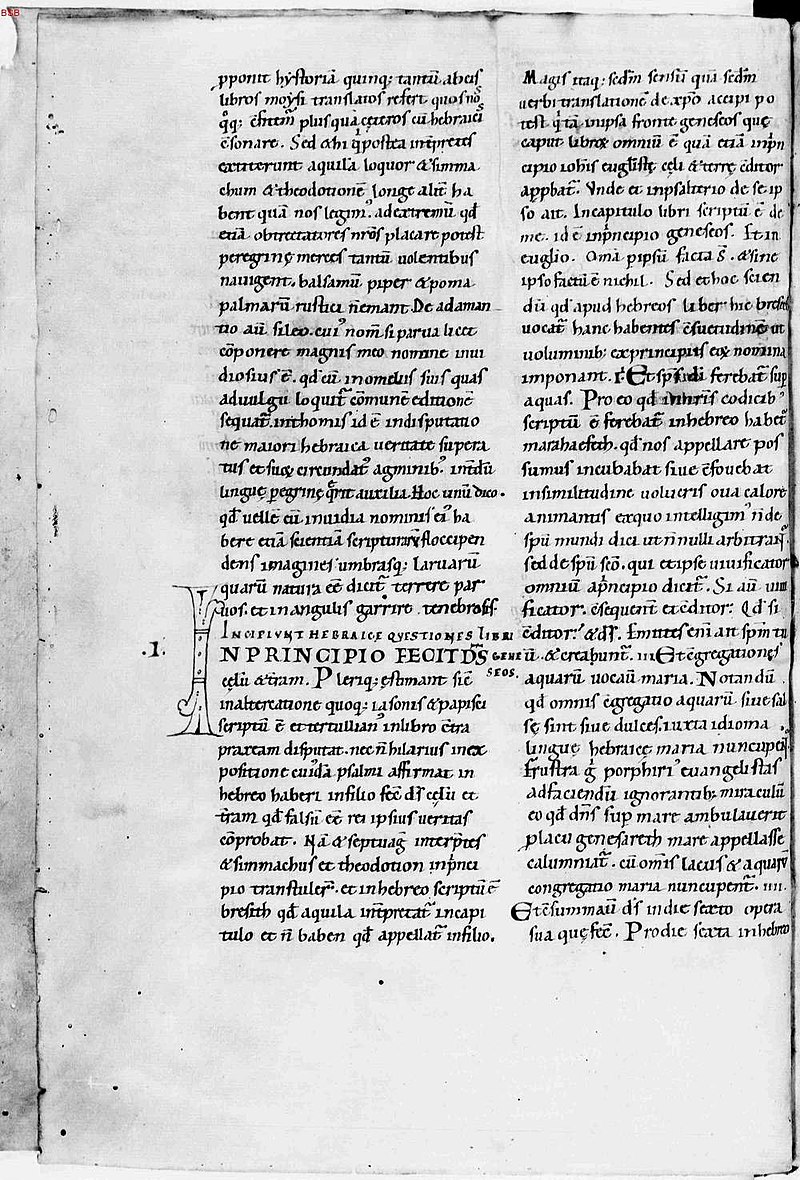 BSB
pponit hystoriā quinq; tantū abeis
libros moysi translatos refert quos nos
q̊q; c̄fitem̄ plus quā cęteros cū hebraicis
c̄sonare. Sed & hi q̇ postea int̄pretes
extiterunt aquila loquor & simma
chum & theodotionē longe alit̄ ha
bent quā nos legim᾽. ad extremū qđ
etiā obtrectatores nr̄os placare potest
peregrinę merces tantū volentibus
navigent. balsamū piper & poma
palmarū rustici n̄ emant. De adaman
tio aū sileo. cui᾽ nom̄ si parva licet
cōponere magnis meo nomine invi
diosius ē. qđ cū in omeliis suis quas
ad vulgū loquit᷑ cōmunē editionē
sequat᷑. in thomis id ē in disputatio
ne maiori hebraica veritate supera
tus et suoꝝ circundat᷑ agminib᾽. int̄dū
linguę peregrinę q̄rit auxilia. Hoc unū dico.
qđ vellē cū invidia nominis ei᾽ ha
bere etiā scientiā scripturarū floccipen
dens imagines umbrasq; larvarū
quarū natura eē dicit᷑ terrere par
vos. et in angulis garrire tenebrosis.
INCIPIUNT HEBRAICE QUESTIONES LIBRI
.I. IN PRINCIPIO FECIT DS̄ GENE
SEOS.
cęlū & t̄ram. Pleriq; estimant sic̄
in altercatione quoq; iasonis & papisci
scriptū ē et tertullian᾽ in libro c̄tra
praxeam disputat. nec n̄ hilarius in ex
positione cui᾽dā psalmi affirmat in
hebreo haberi in filio fec̄ ds̄ cęlū et
t̄ram qđ falsū eē rei ipsius veritas
cōprobat. Nā & septuag̃ interp̄tes
& simmachus et theodotion inp̄nci
pio transtuler̄. et in hebreo scriptū ē
bresith qđ aquila int̄pretat᷑ in capi
tulo et n̄ baben qđ appellat᷑ in filio.
Magis itaq; sedm̄ sensū quā sedm̄
verbi translationē de xp̄o accipi po
test q̇ tā in ipsa fronte geneseos quę
caput libroꝝ omniū ē quā etiā inp̄n
cipio iohis euglistę cęli & terrę c̄ditor
app̄bat᷑. Unde et in psalterio de se ip
so ait. In capitulo libri scriptū ē de
me. id ē inp̄ncipio geneseos. Et in
euglio. Om̄a p̄ ipsū facta s̄. & sine
ipso factū ē nichil. Sed et hoc scien
dū qđ apud hebreos liber hic bresith
vocat᷑ hanc habentes c̄suetudinē ut
voluminib; ex principiis eoꝝ nomina
imponant. Et sp̄s di ferebat᷑ sup̄
aquas. Pro eo qđ in nr̄is codicib᾽
scriptū ē ferebat᷑ in hebreo habet᷑
marahaefeth. qđ nos appellare pos
sumus incubabat sive c̄fovebat
in similitudinē volucris ova calore
animantis ex quo intelligim᾽ n̄ de
sp̄u mundi dici ut n̄ nulli arbitrant᷑
sed de sp̄u scō. qui et ipse vivificator
omniū ap̄ncipio dicit᷑. Si aū vivi
ficator. c̄sequent᷑ et c̄ditor. Qđ si
c̄ditor. & ds̄. Emittes eni ait sp̄m tu
ū. & creabunt᷑. III Et c̄gregationes
aquarū vocavit maria. Notandū.
qđ omnis c̄gregatio aquarū sive sal
sę sint sive dulces. iuxta idioma
linguę hebraicę maria nuncupent᷑
Frustra g̊ porphiri᾽ evangelistas
ad faciendū ignorantib; miraculū
eo qđ dn̄s sup̄ mare ambulaverit
p̄ lacu genesareth mare appellasse
calumniat᷑. cū om̄is lacus & aquarū
congregatio maria nuncupent᷑. IIII.
Et c̄summavit ds̄ in die sexto opera
sua quę fec̄. Pro die sexta in hebreo